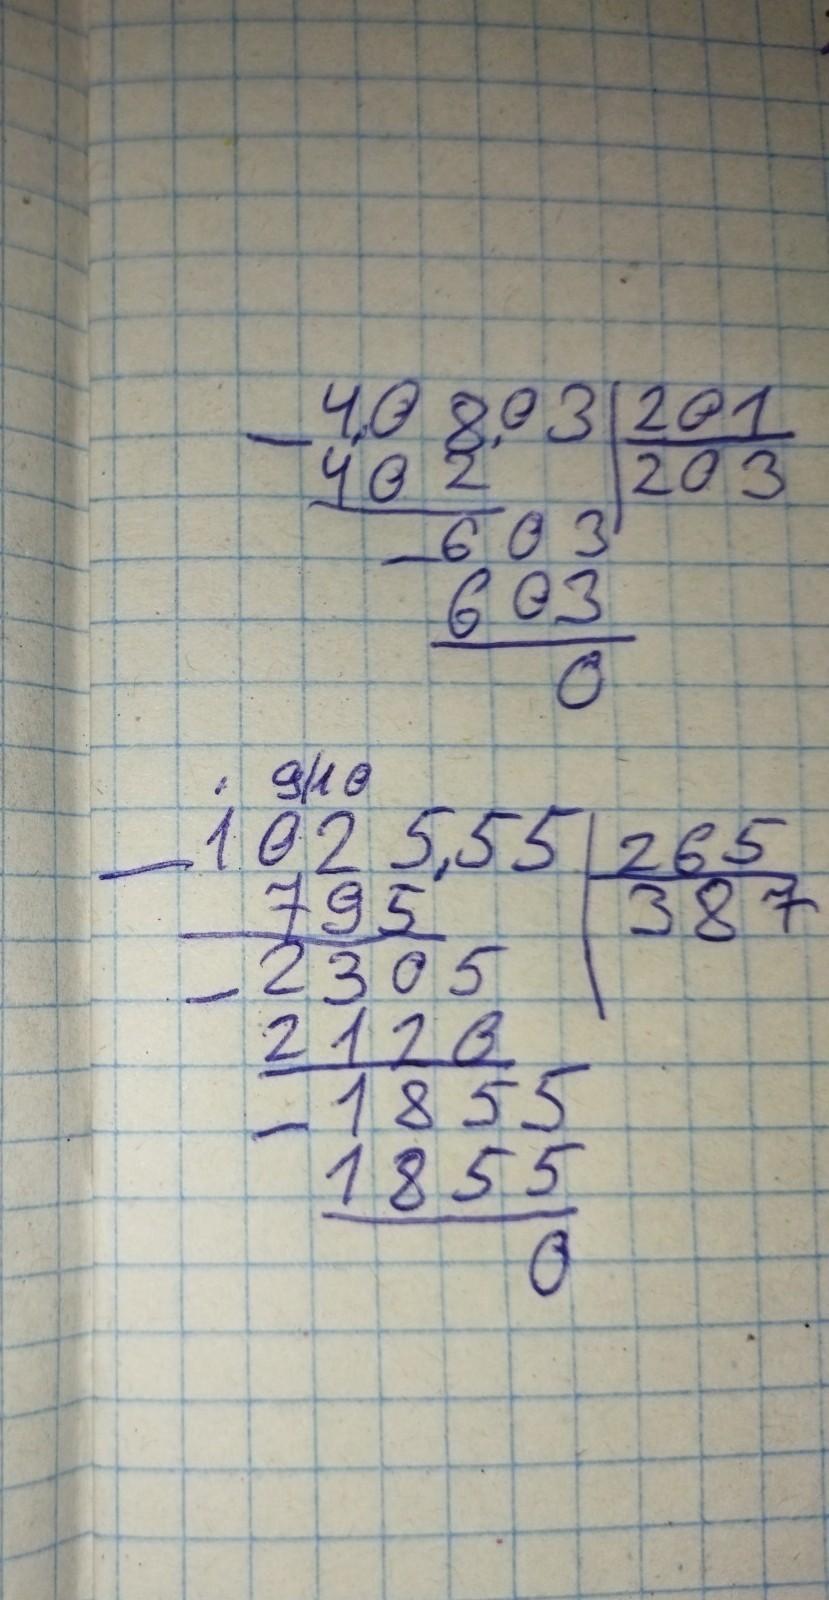 - 4,0 8,03 | 201
402 | 203
- 603
603
0
9/10
- 1025,55 | 265
795 | 387
- 2305
2120
- 1855
1855
0